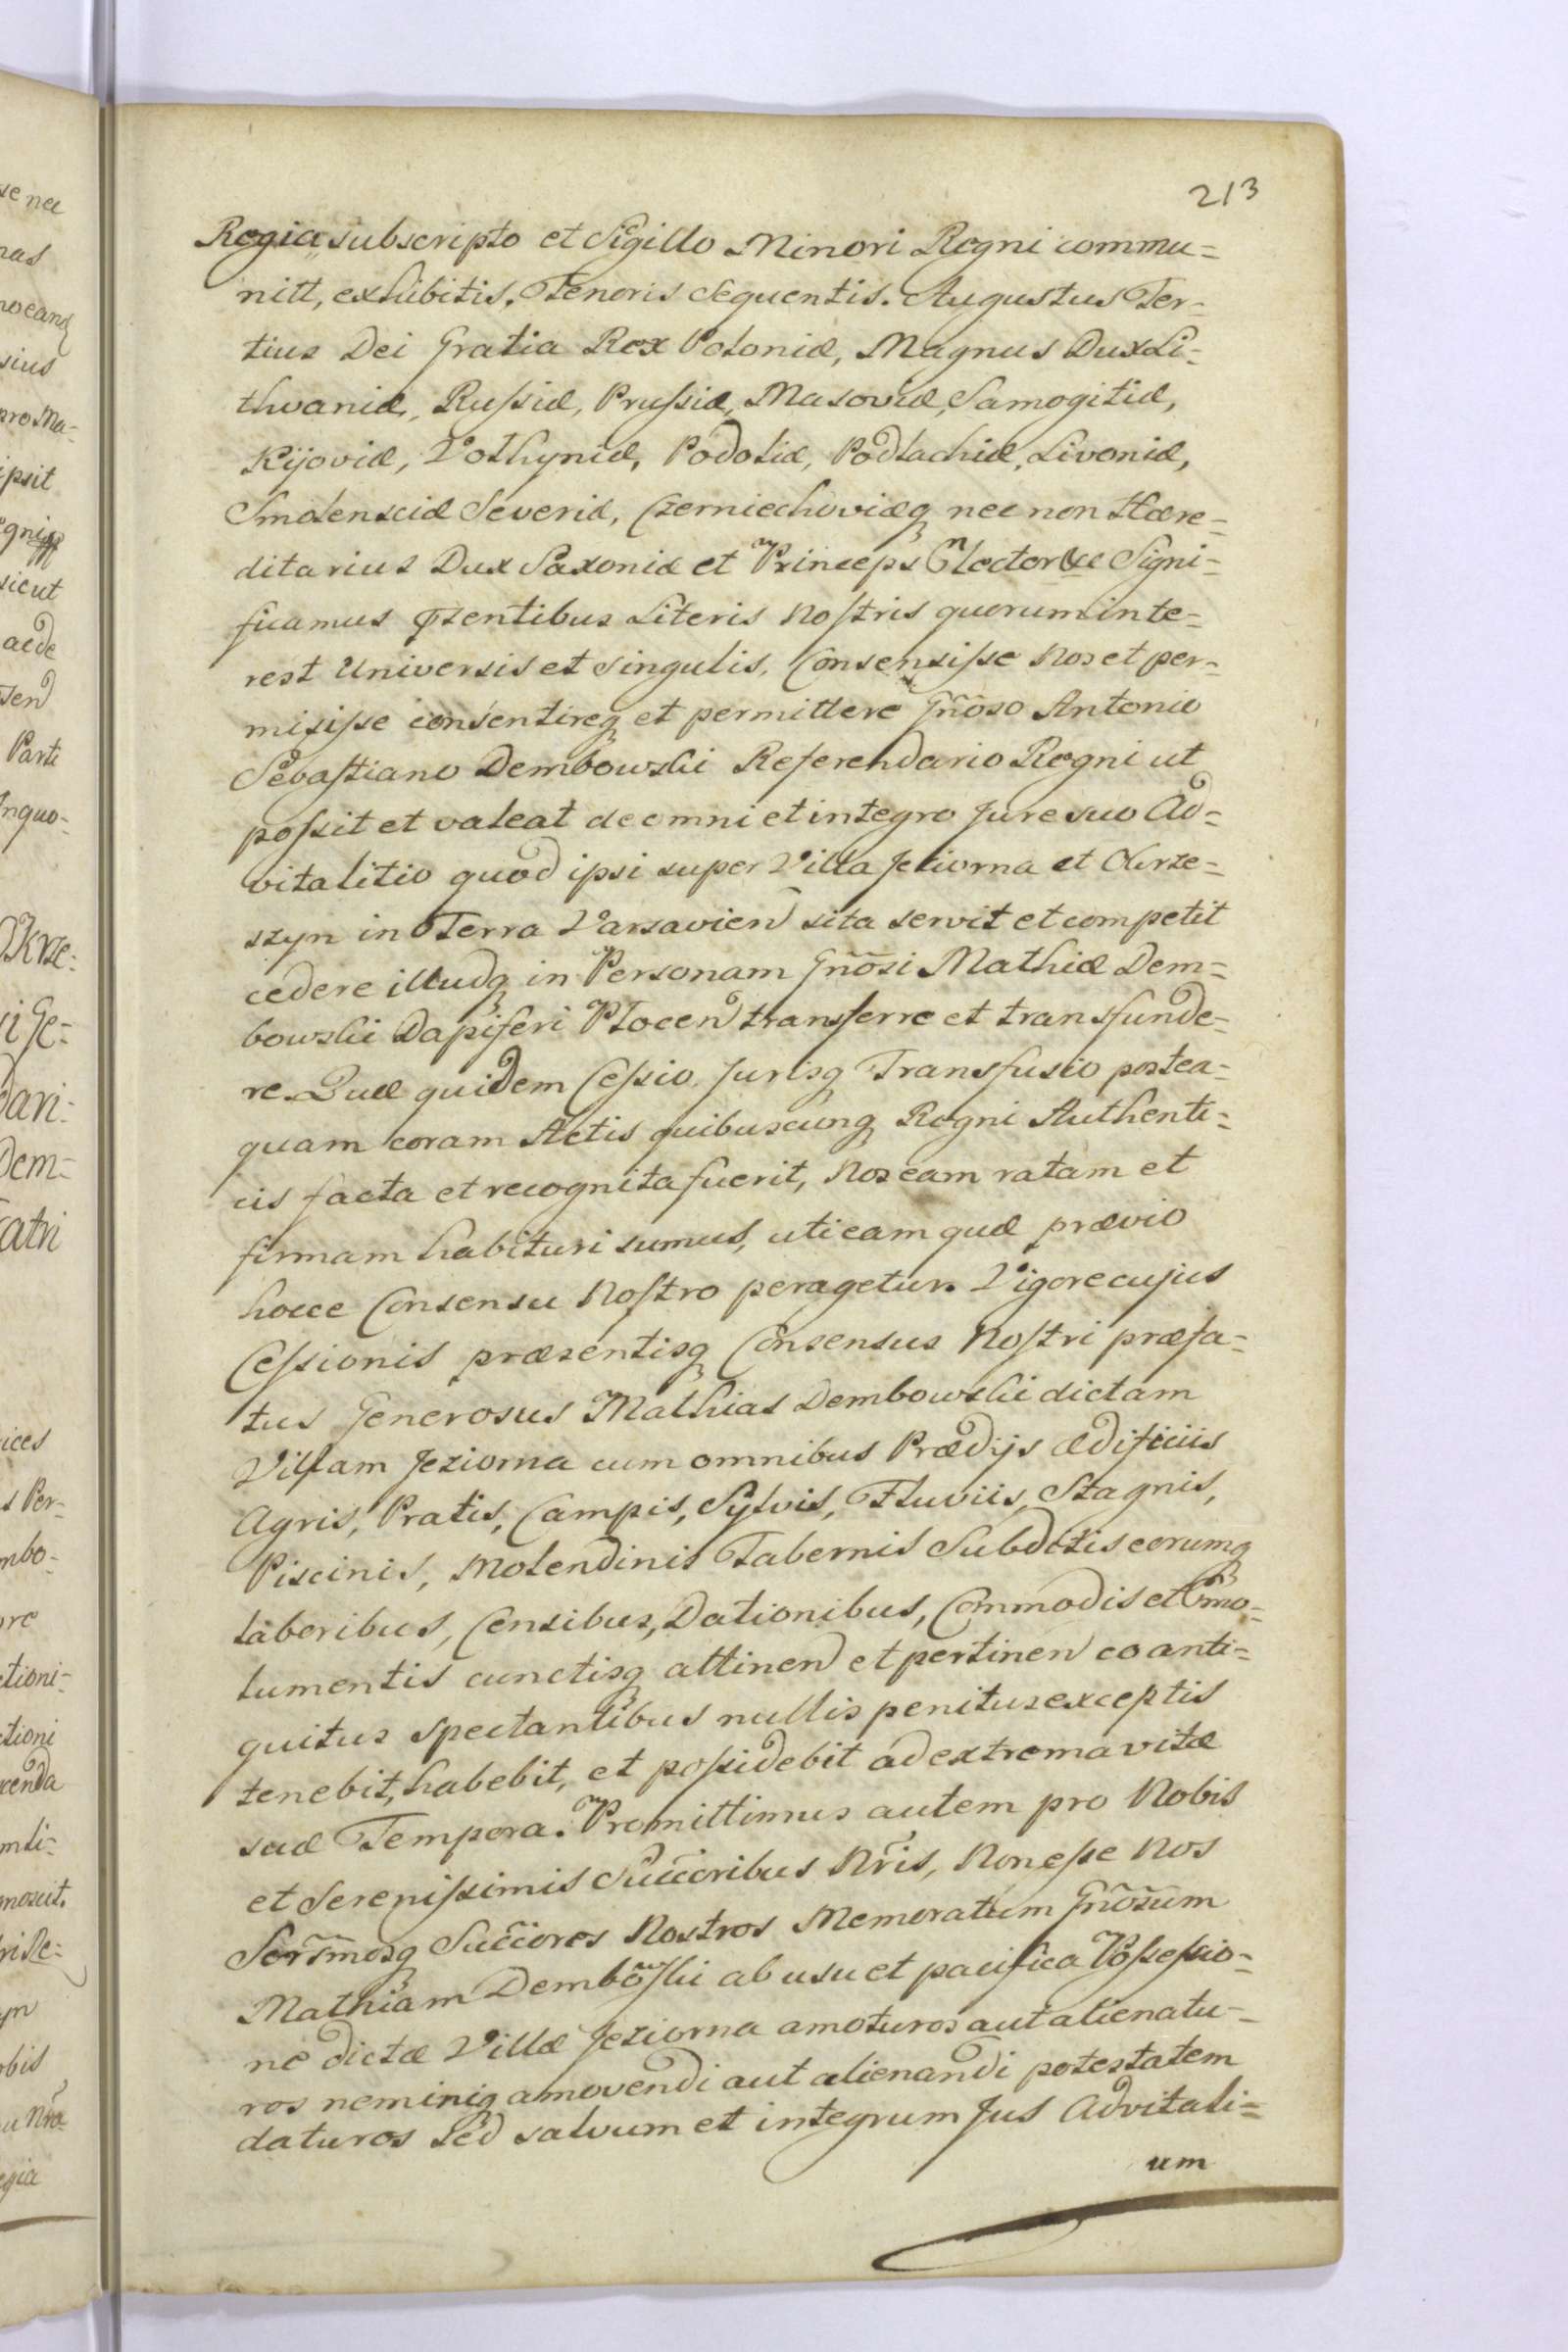 213
Regia subscripto et Sigillo Minori Regni commu=
nitt, exhibitis, Tenoris Sequentis. Augustus Ter=
tius Dei Gratia Rex Poloniæ, Magnus Dux Li=
thvaniæ, Russiæ, Prussiæ, Masoviæ, Samogitiæ,
Kijoviæ, Volhyniæ, Podoliæ, Podlachiæ, Livoniæ,
Smolensciæ Severiæ, Czerniechoviæq nec non Hære=
ditarius Dux Saxoniæ et Princeps Elector &c Signi=
ficamus pñsentibus Literis Nostris quorum inte=
rest Universis et Singulis, Consensisse Nos et per=
misisse consentireq et permittere Gñoso Antonio
Sebastiano Dembowski Referendario Regni ut
possit et valeat de omni et integro Jure suo Ad=
vitalitio quod ipsi super Villa Jeziorna et Okrze=
szyn in Terra Varsavien sita servit et competit
cedere illudq in Personam Gñosi Mathiæ Dem=
bowski Dapiferi Plocen transferre et transfunde=
re. Quæ quidem Cessio Jurisq Transfusio postea=
quam coram Actis quibuscunq Regni Authenti=
cis facta et recognita fuerit, Nos eam ratam et
firmam habituri sumus, uti eam quæ prævio
hocce Consensu Nostro peragetur. Vigore cujus
Cessionis præsentisq Consensus Nostri præfa=
tus Generosus Mathias Dembowski dictam
Villam Jeziorna cum omnibus Prædijs ædificiis
Agris, Pratis, Campis, Sylvis, Fluviis, Stagnis,
Piscinis, Molendinis Tabernis Subditis eorumq
laboribus, Censibus, Dationibus, Commodis et Emo=
lumentis cunctisq attinen et pertinen eo anti=
quitus spectantibus nullis penitus exceptis
tenebit, habebit, et possidebit ad extrema vitæ
suæ Tempora. Promittimus autem pro Nobis
et Serenissimis Succoribus Nris, Non esse Nos
Serr̃mosq Succores Nostros Memoratum Gñosum
Mathiam Dembowski ab usu et pacifica Possessio=
ne dictæ Villæ Jeziorna amoturos aut alienatu=
ros neminiq amovendi aut alienandi potestatem
daturos Sed salvum et integrum Jus Advitali=
um